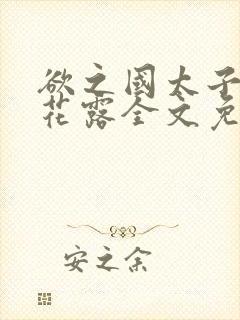 欲之国太子
花露全文免
安之余